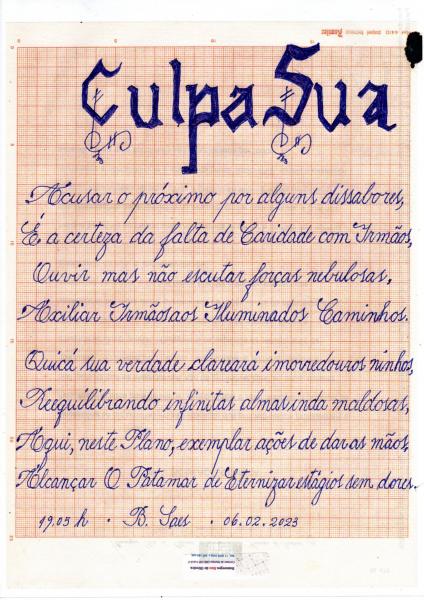 Culpa Sua
Acusar o próximo por alguns dissabores,
É a certeza da falta de Caridade com Irmãos,
Ouvir mas não escutar forças nebulosas,
Axiliar Irmãos aos Iluminados Caminhos.
Quicá sua verdade clareará imorredouros ninhos,
Reequilibrando infinitas almas inda maldosas,
Aqui, neste Plano, exemplar ações de dar as mãos,
Alcançar O Patamar de Eternizar estágios sem dores.
19.05 h . B. Saes . 06.02.2023